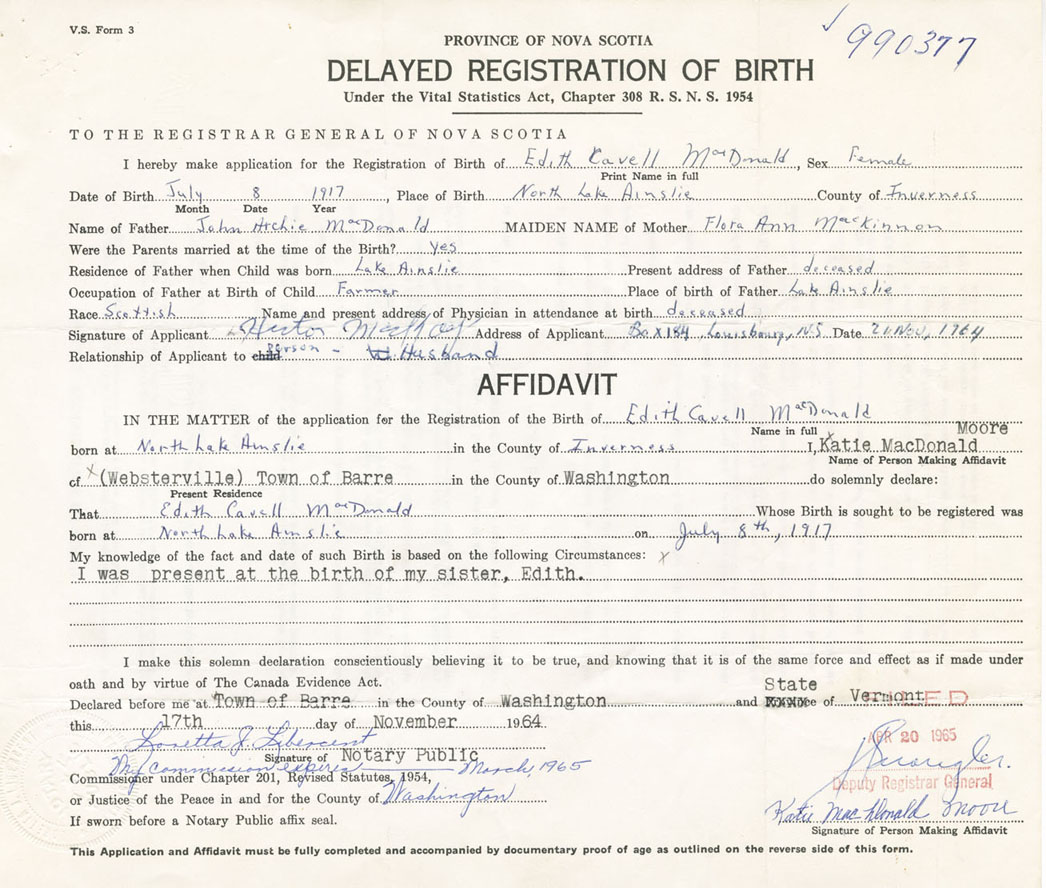 V.S. Form 3
990377
PROVINCE OF NOVA SCOTIA
DELAYED REGISTRATION OF BIRTH
Under the Vital Statistics Act, Chapter 308 R. S. N. S. 1954
TO THE REGISTRAR GENERAL OF NOVA SCOTIA
I hereby make application for the Registration of Birth of Edith Cavell MacDonald, Sex Female
Print Name in full
Date of Birth July 8 1917, Place of Birth North Lake Ainslie County of Inverness
Month Date Year
Name of Father John Archie MacDonald MAIDEN NAME of Mother Flora Ann MacKinnon
Were the Parents married at the time of the Birth? yes
Residence of Father when Child was born Lake Ainslie Present address of Father deceased
Occupation of Father at Birth of Child Farmer Place of birth of Father Lake Ainslie
Race Scottish Name and present address of Physician in attendance at birth deceased
Signature of Applicant Hector Address of Applicant Box 184, Louisbourg, N.S. Date 21 Nov, 1964
Relationship of Applicant to child person - Husband
AFFIDAVIT
IN THE MATTER of the application for the Registration of the Birth of Edith Cavell MacDonald
Name in full Moore
born at North Lake Ainslie in the County of Inverness I, Katie MacDonald
Name of Person Making Affidavit
of x (Websterville) Town of Barre in the County of Washington do solemnly declare:
Present Residence
That Edith Cavell MacDonald Whose Birth is sought to be registered was
born at North Lake Ainslie on July 8th, 1917
My knowledge of the fact and date of such Birth is based on the following Circumstances: x
I was present at the birth of my sister, Edith.
I make this solemn declaration conscientiously believing it to be true, and knowing that it is of the same force and effect as if made under
oath and by virtue of The Canada Evidence Act.
State
Declared before me at Town of Barre in the County of Washington and XXXX of Vermont
this 17th day of November 1964
APR 20 1965
Loretta J.
Signature of Notary Public
My commission expires March, 1965
Commissioner under Chapter 201, Revised Statutes, 1954,
Deputy Registrar General
or Justice of the Peace in and for the County of Washington
Katie MacDonald Moore
If sworn before a Notary Public affix seal.
Signature of Person Making Affidavit
This Application and Affidavit must be fully completed and accompanied by documentary proof of age as outlined on the reverse side of this form.